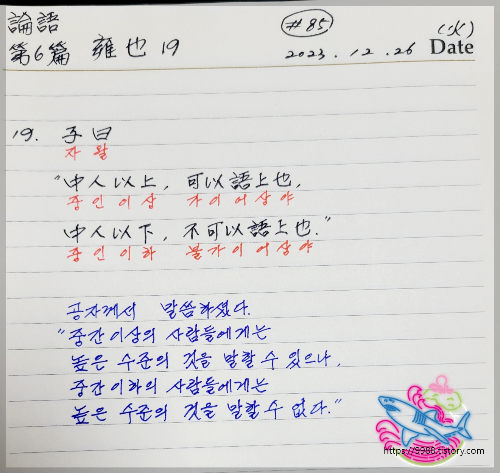 論語
第6篇 雍也 19
#85
2023. 12. 26
(火)
Date
19. 子曰
자 왈
"中人以上, 可以語上也,
중 인 이 상 가 이 어 상 야
中人以下, 不可以語上也."
중 인 이 하 불 가 이 어 상 야
공자께서 말씀하셨다.
"중간 이상의 사람들에게는
높은 수준의 것을 말할 수 있으나,
중간 이하의 사람들에게는
높은 수준의 것을 말할 수 없다."
https://9988.tistory.com